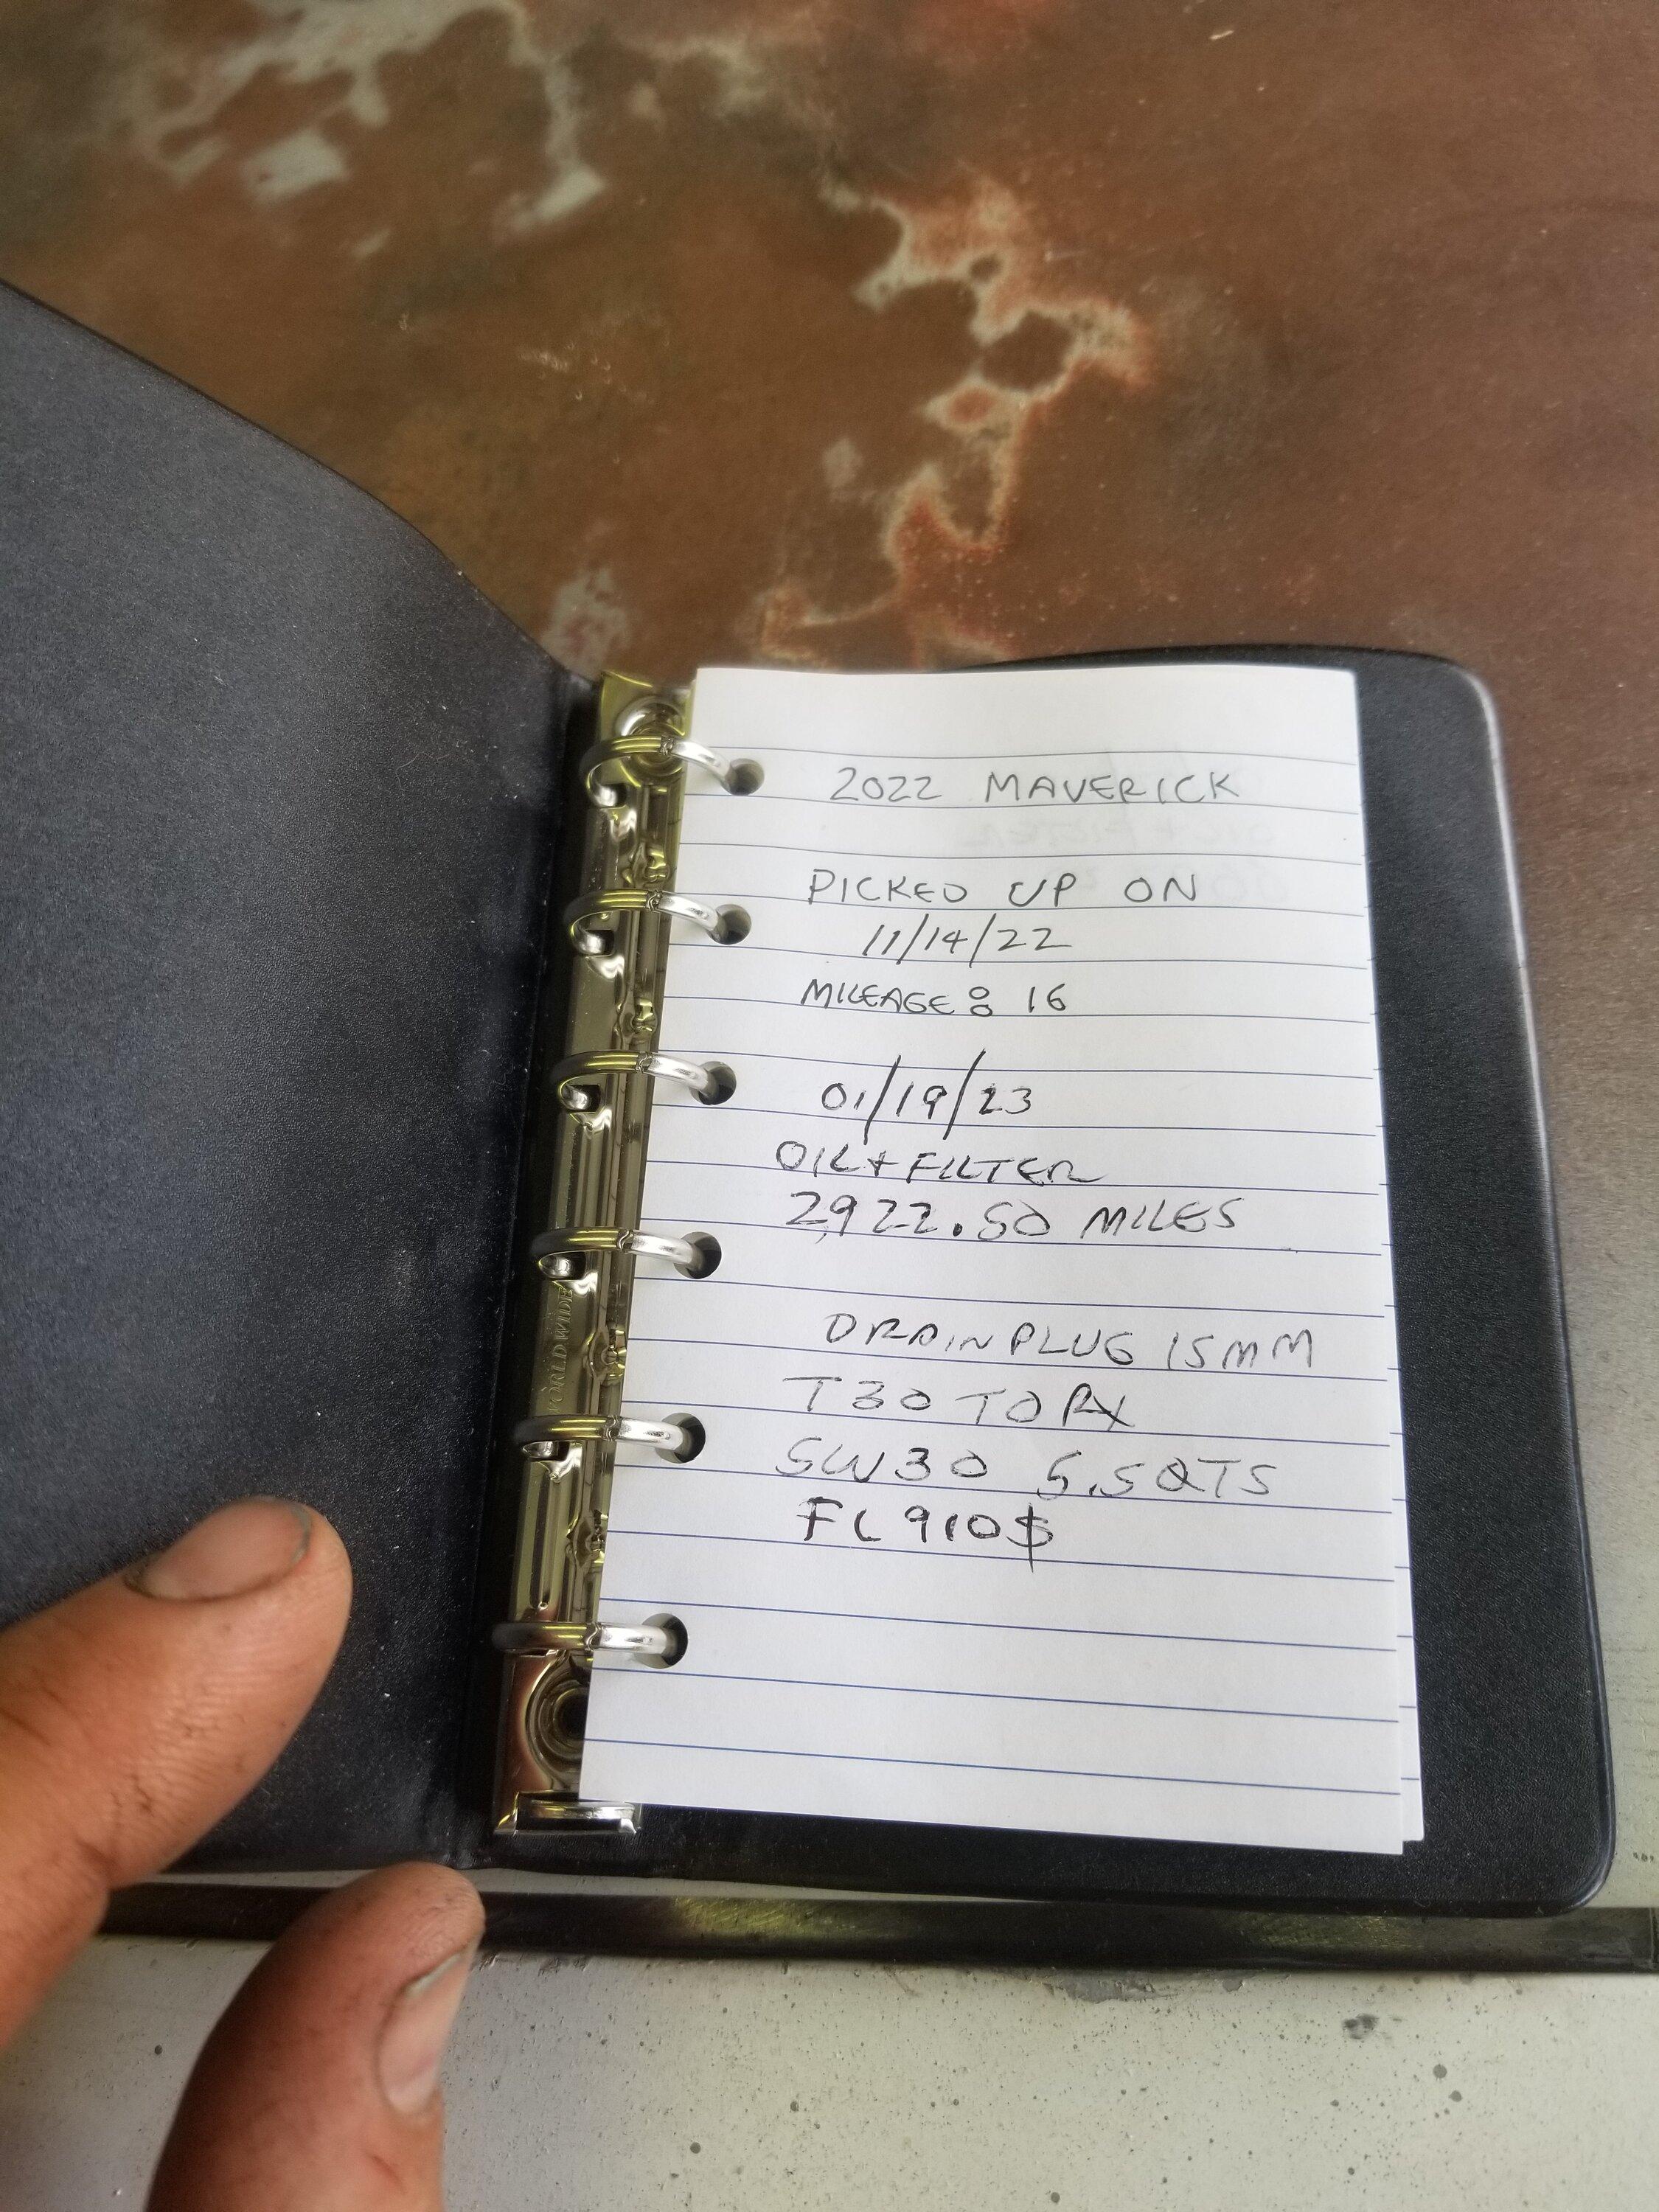 2022 MAVERICK
PICKED UP ON
11/14/22
MILEAGE: 16
01/19/23
OIL + FILTER
2922.50 MILES
DRAIN PLUG 15MM
T30 TORX
5W30 5.5QTS
FL910S
WORLDWIDE